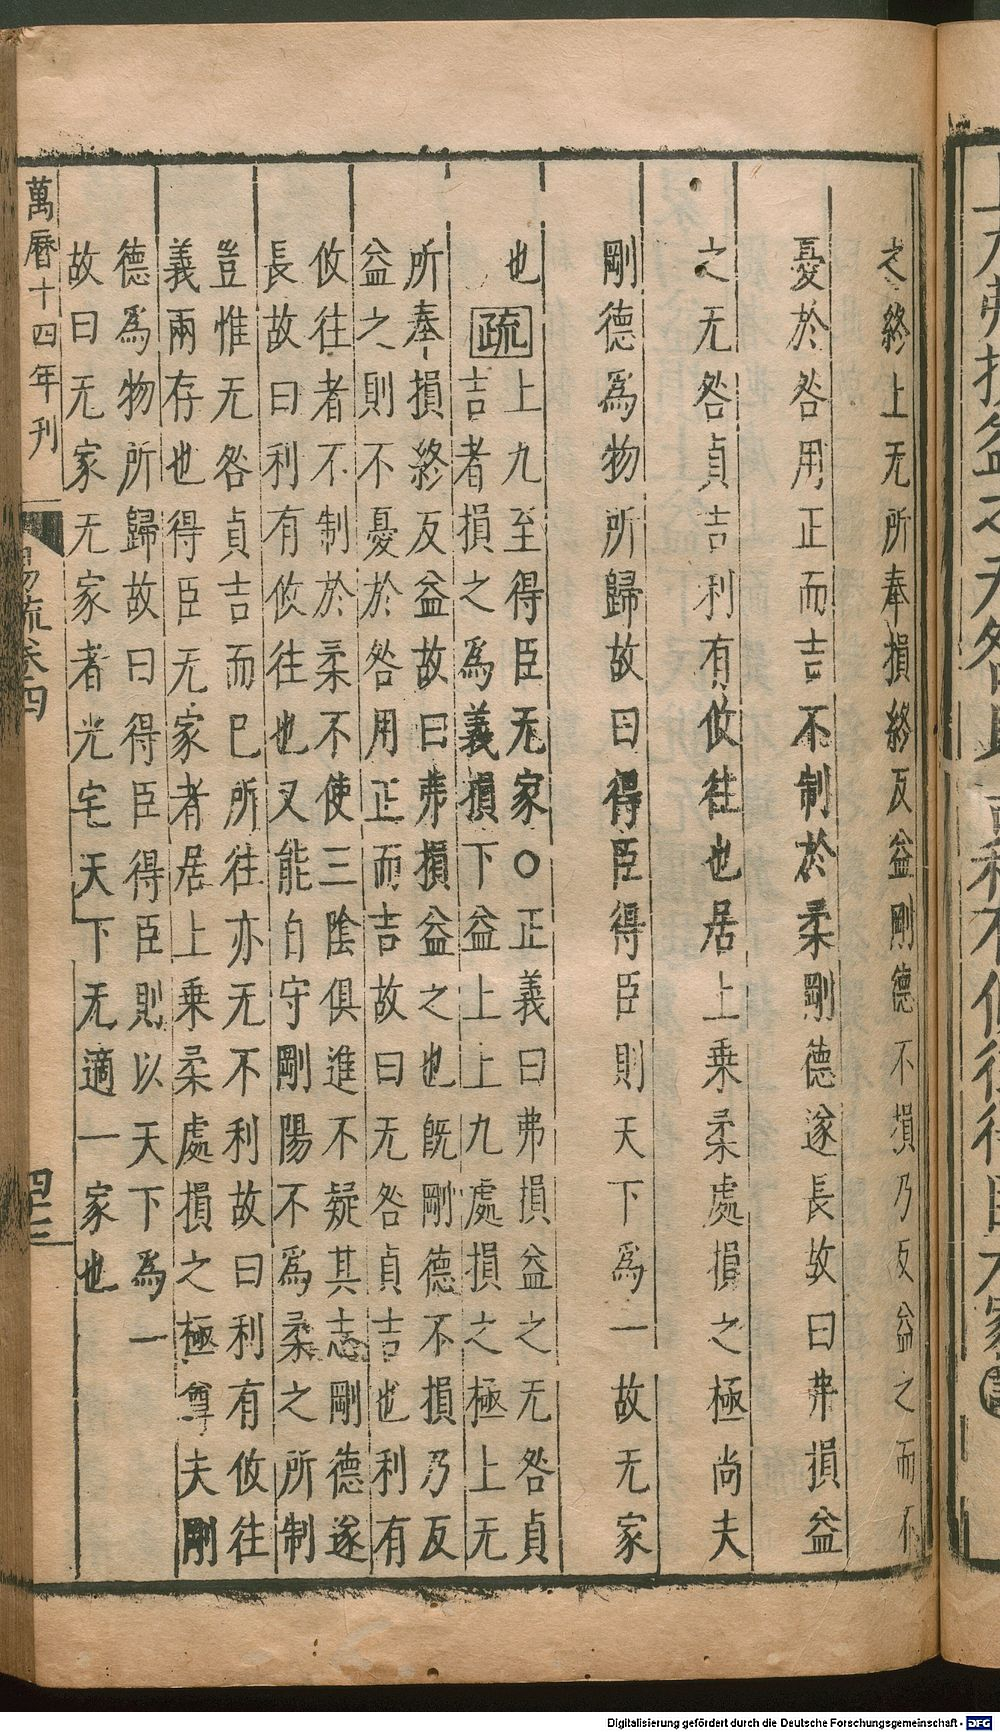 之終上无所奉損終反益剛德不損乃反益之而不
憂於咎用正而吉不制於柔剛德遂長故曰弗損益
之无咎貞吉利有攸往也居上乗柔處損之極尚夫
剛德爲物所歸故曰得臣得臣則天下爲一故无家
也疏上九至得臣无家○正義曰弗損益之无咎貞
吉者損之爲義損下益上上九處損之極上无
所奉損終反益故曰弗損益之也旣剛德不損乃反
益之則不憂於咎用正而吉故曰无咎貞吉也利有
攸往者不制於柔不使三陰俱進不疑其志剛德遂
長故曰利有攸往也又能自守剛陽不爲柔之所制
豈惟无咎貞吉而巳所往亦无不利故曰利有攸往
義兩存也得臣无家者居上乗柔處損之極尊夫剛
德爲物所歸故曰得臣得臣則以天下爲一
故曰无家无家者光宅天下无適一家也
萬曆十四年刊
易疏卷四
四三
Digitalisierung gefördert durch die Deutsche Forschungsgemeinschaft - DFG